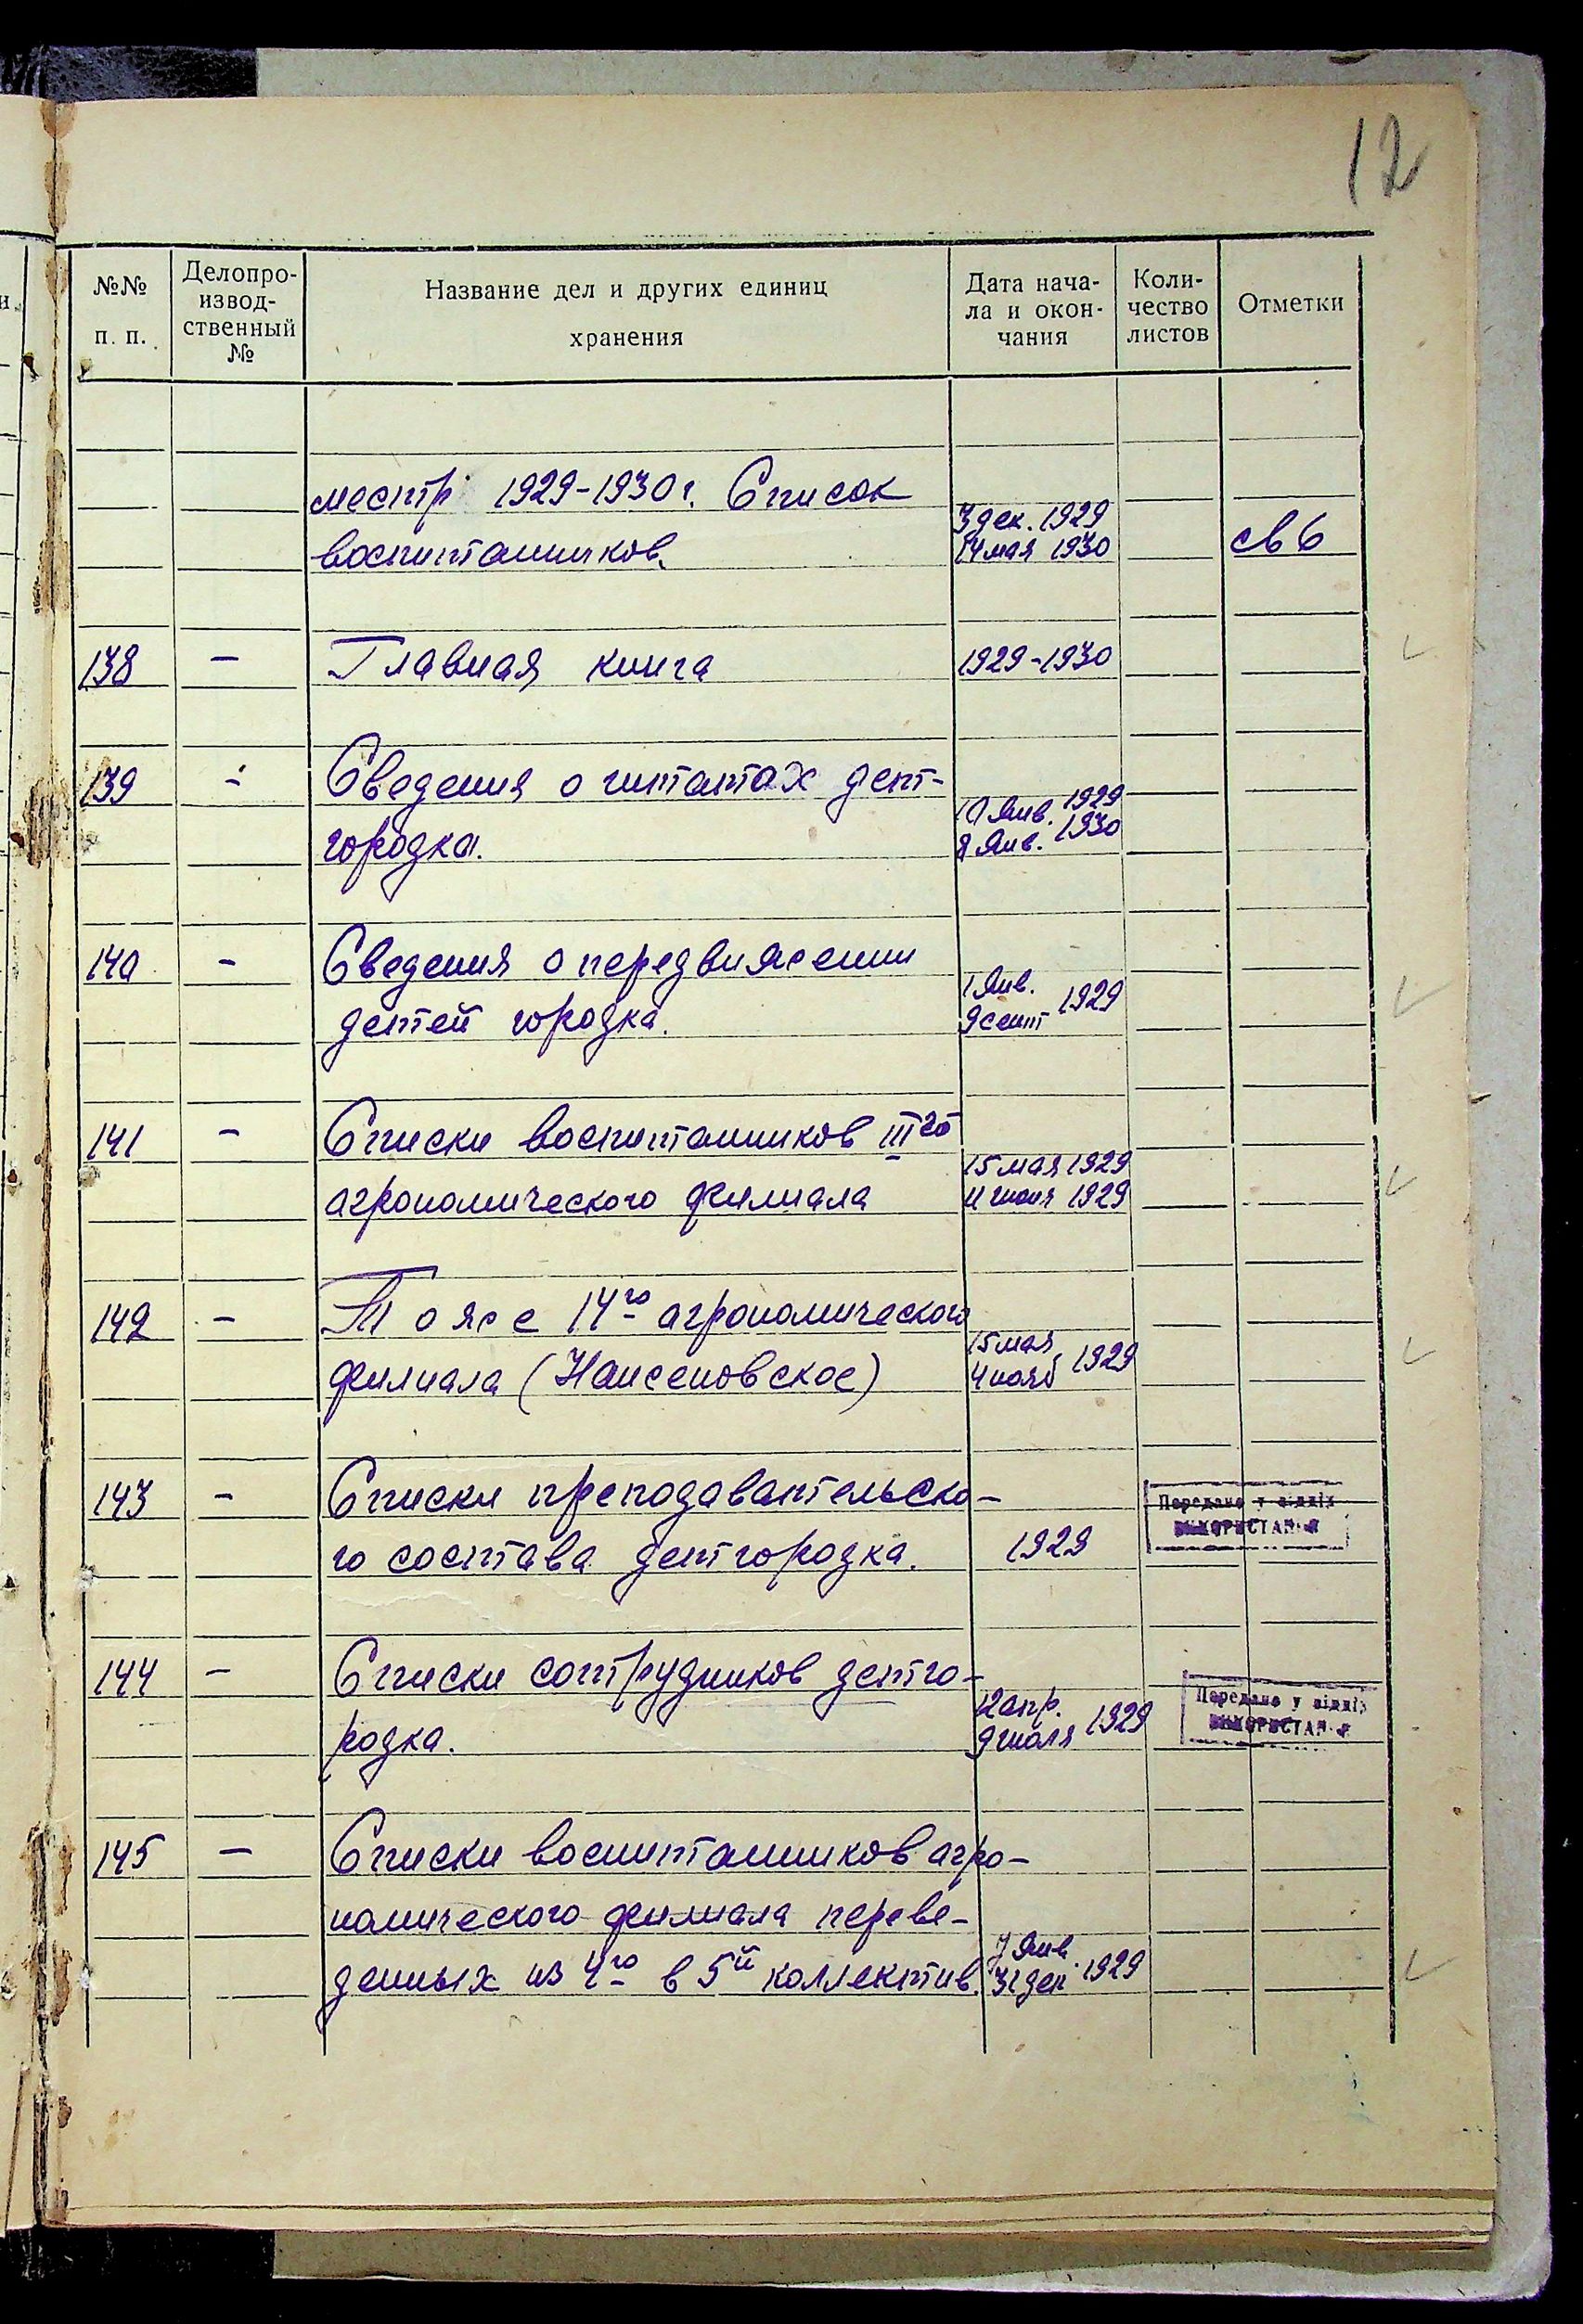 12
№№ п. п.
Делопро-
извод-
ственный
№
Название дел и других единиц
хранения
Дата нача-
ла и окон-
чания
Коли-
чество
листов
Отметки
местр 1929-1930 г. Список
воспитанников.
3 дек. 1929
14 мая 1930
св 6
138 - Главная книга 1929-1930
139 - Сведения о штатах дет-
городка.
10 янв. 1929
8 янв. 1930
140 - Сведения о передвижении
детей городка.
1 янв.
9 сент 1929
141 - Списки воспитанников III го
агрономического филиала
15 мая 1929
11 июня 1929
142 - То же 14го агрономического
филиала (Нансеновское)
15 мая
4 нояб 1929
143 - Списки преподавательско-
го состава детгородка.
1929
Передано у відділ
використання
144 - Списки сотрудников детго-
родка.
12 апр.
9 июля 1929
Передано у відділ
використання
145 - Списки воспитанников агро-
номического филиала переве-
денных из 4го в 5й коллектив.
7 янв.
31 дек 1929